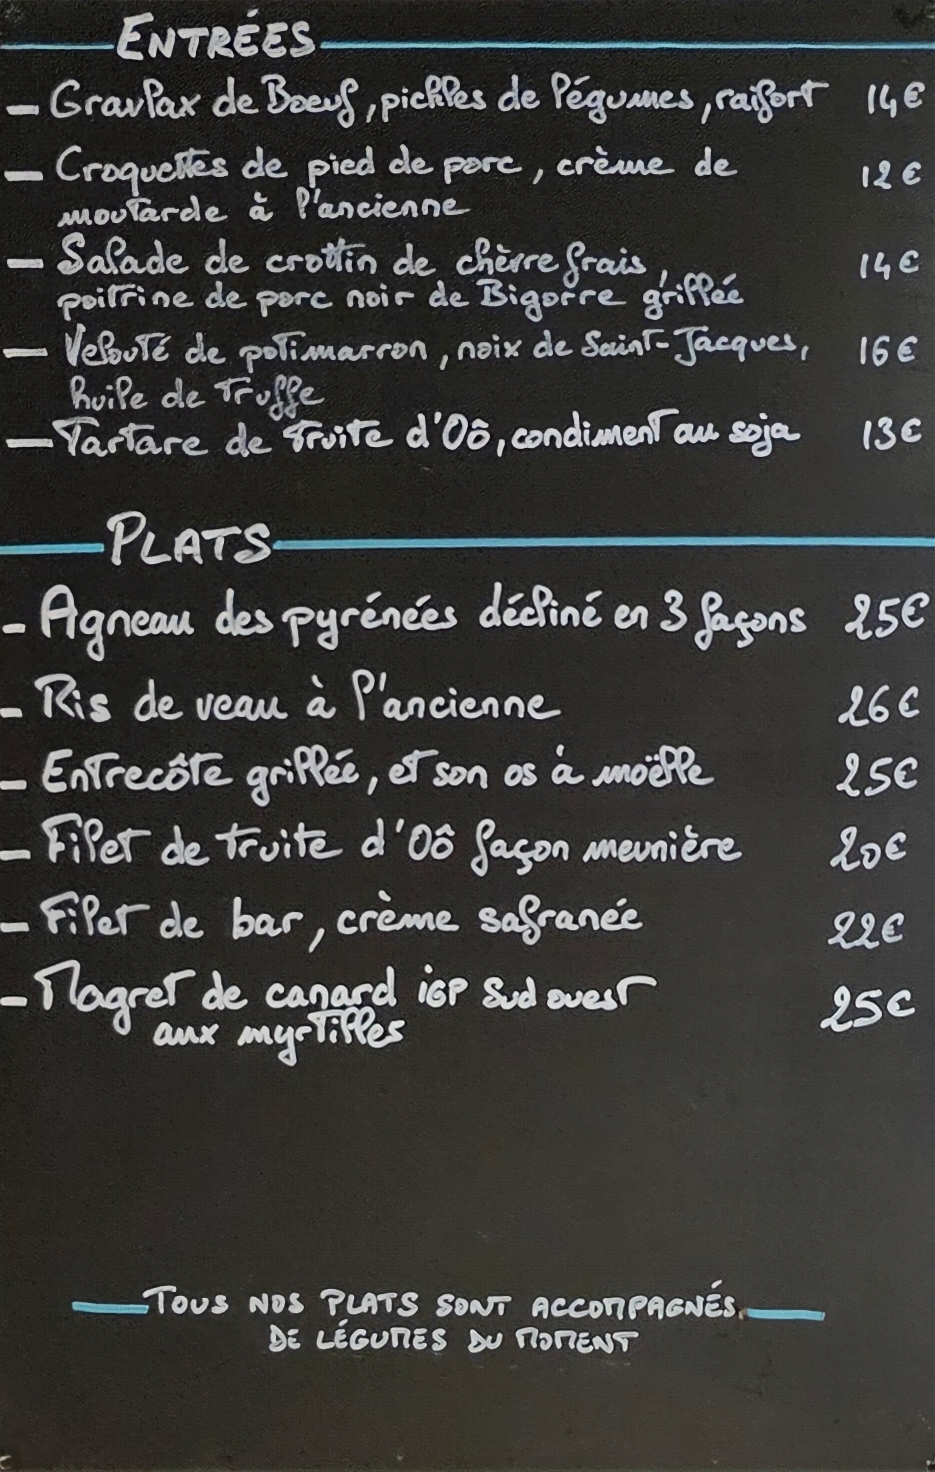 ENTRÉES
– Gravlax de Bœuf, pickles de légumes, raifort 14€
– Croquettes de pied de porc, crème de 12€
moutarde à l'ancienne
– Salade de crottin de chèvre frais, 14€
poitrine de porc noir de Bigorre grillée
– Velouté de potimarron, noix de Saint-Jacques, 16€
huile de Truffe
– Tartare de truite d'Oô, condiment au soja 13€
PLATS
– Agneau des pyrénées décliné en 3 façons 25€
– Ris de veau à l'ancienne 26€
– Entrecôte grillée, et son os à moëlle 25€
– Filet de truite d'Oô façon meunière 20€
– Filet de bar, crème safranée 22€
– Magret de canard iGP Sud ouest 25€
aux myrtilles
TOUS NOS PLATS SONT ACCOMPAGNÉS
DE LÉGUMES DU MOMENT